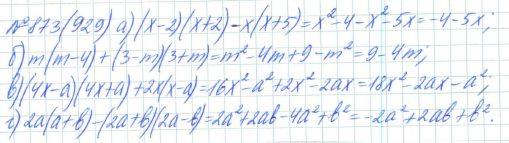 №873(929) а) (x-2)(x+2)-x(x+5)=x²-4-x²-5x=-4-5x;
б) m(m-4)+(3-m)(3+m)=m²-4m+9-m²=9-4m;
в) (4x-a)(4x+a)+2x(x-a)=16x²-a²+2x²-2ax=18x²-2ax-a²;
г) 2a(a+b)-(2a+b)(2a-b)=2a²+2ab-4a²+b²=-2a²+2ab+b².